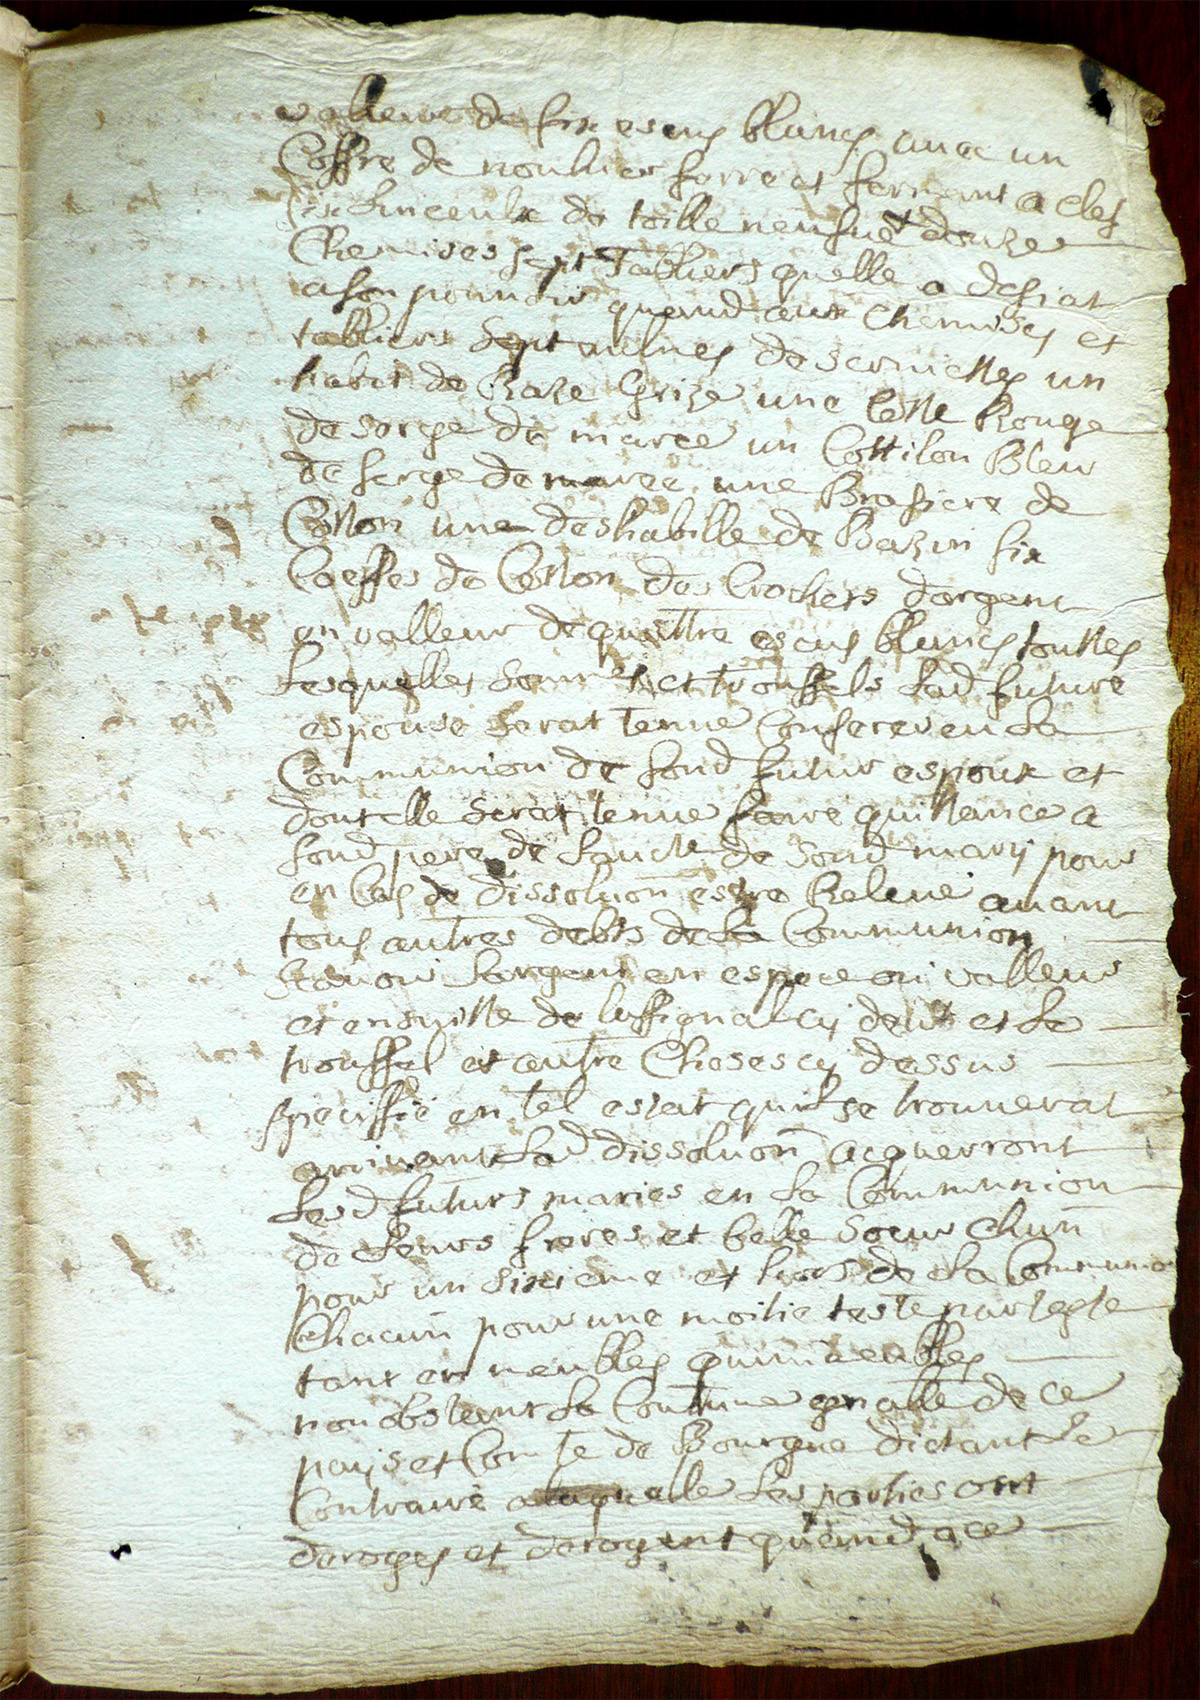 valleure de six escus blancs avec un
Coffre de nouhier ferre et fermant a clef
six linceulx de toille neufue et douze
Chemises sept Tabliers quelle a desiat
a son pouuoir quand aux Chemises et
tabliers sept aulnes de seruiettes un
habit de Raze Grize une Cotte Rouge
de serge de marce un Cottilon Bleu
de serge de marce une Brasiere de
Cotton une deshabille de Bazin six
Coeffes de Cotton des Crochets dargent
en valleur de quattre escus blancs touttes
Lesquelles et trouffels Lad future
espouse serat tenue Conferer en La
Communion de sond futur espoux et
dont elle serat tenue faire quittance a
sond pere de Laucte de sond mary pour
en Cas de dissoluon estre Releue auant
tous autres debts de La Communion
scauoir Largent en espece ou valleur
et ensuitte de lassignal cy deut et Le
trouffel et autre Choses cy dessus
speciffie en tel estat quil se trouuerat
arriuant Lad dissoluon acquerront
Lesd futurs maries en La Communion
de Leurs freres et belle soeur Chun
pour un sixieme et hors de La Communio
Chacun pour une moitie teste par teste
tant en meubles quimmeubles
nonobstant La Coutume gnalle de ce
pays et Comte de Bourgne dictant Le
Contraire a laquelle Les parties ont
deroges et derogent quand a ce